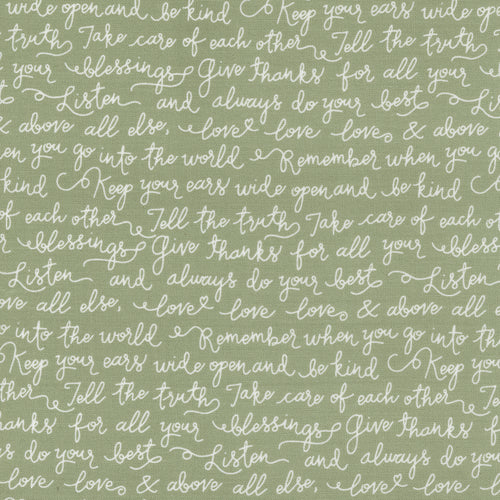 wide open and be kind Keep your ears wide open
truth Take care of each other Tell the truth
your blessings Give thanks for all your
Listen and always do your best
& above all else, love love love & above
en you go into the world Remember when you
kind Keep your ears wide open and be kind
of each other Tell the truth Take care of
blessings Give thanks for all your blessing
Listen and always do your best Listen
ove all else, love love love & above all
into the world Remember when you go into th
Keep your ears wide open and be kind Keep
ther Tell the truth Take care of each other
hanks for all your blessings Give thanks
s do your best Listen and always do
love love & above all else, love love